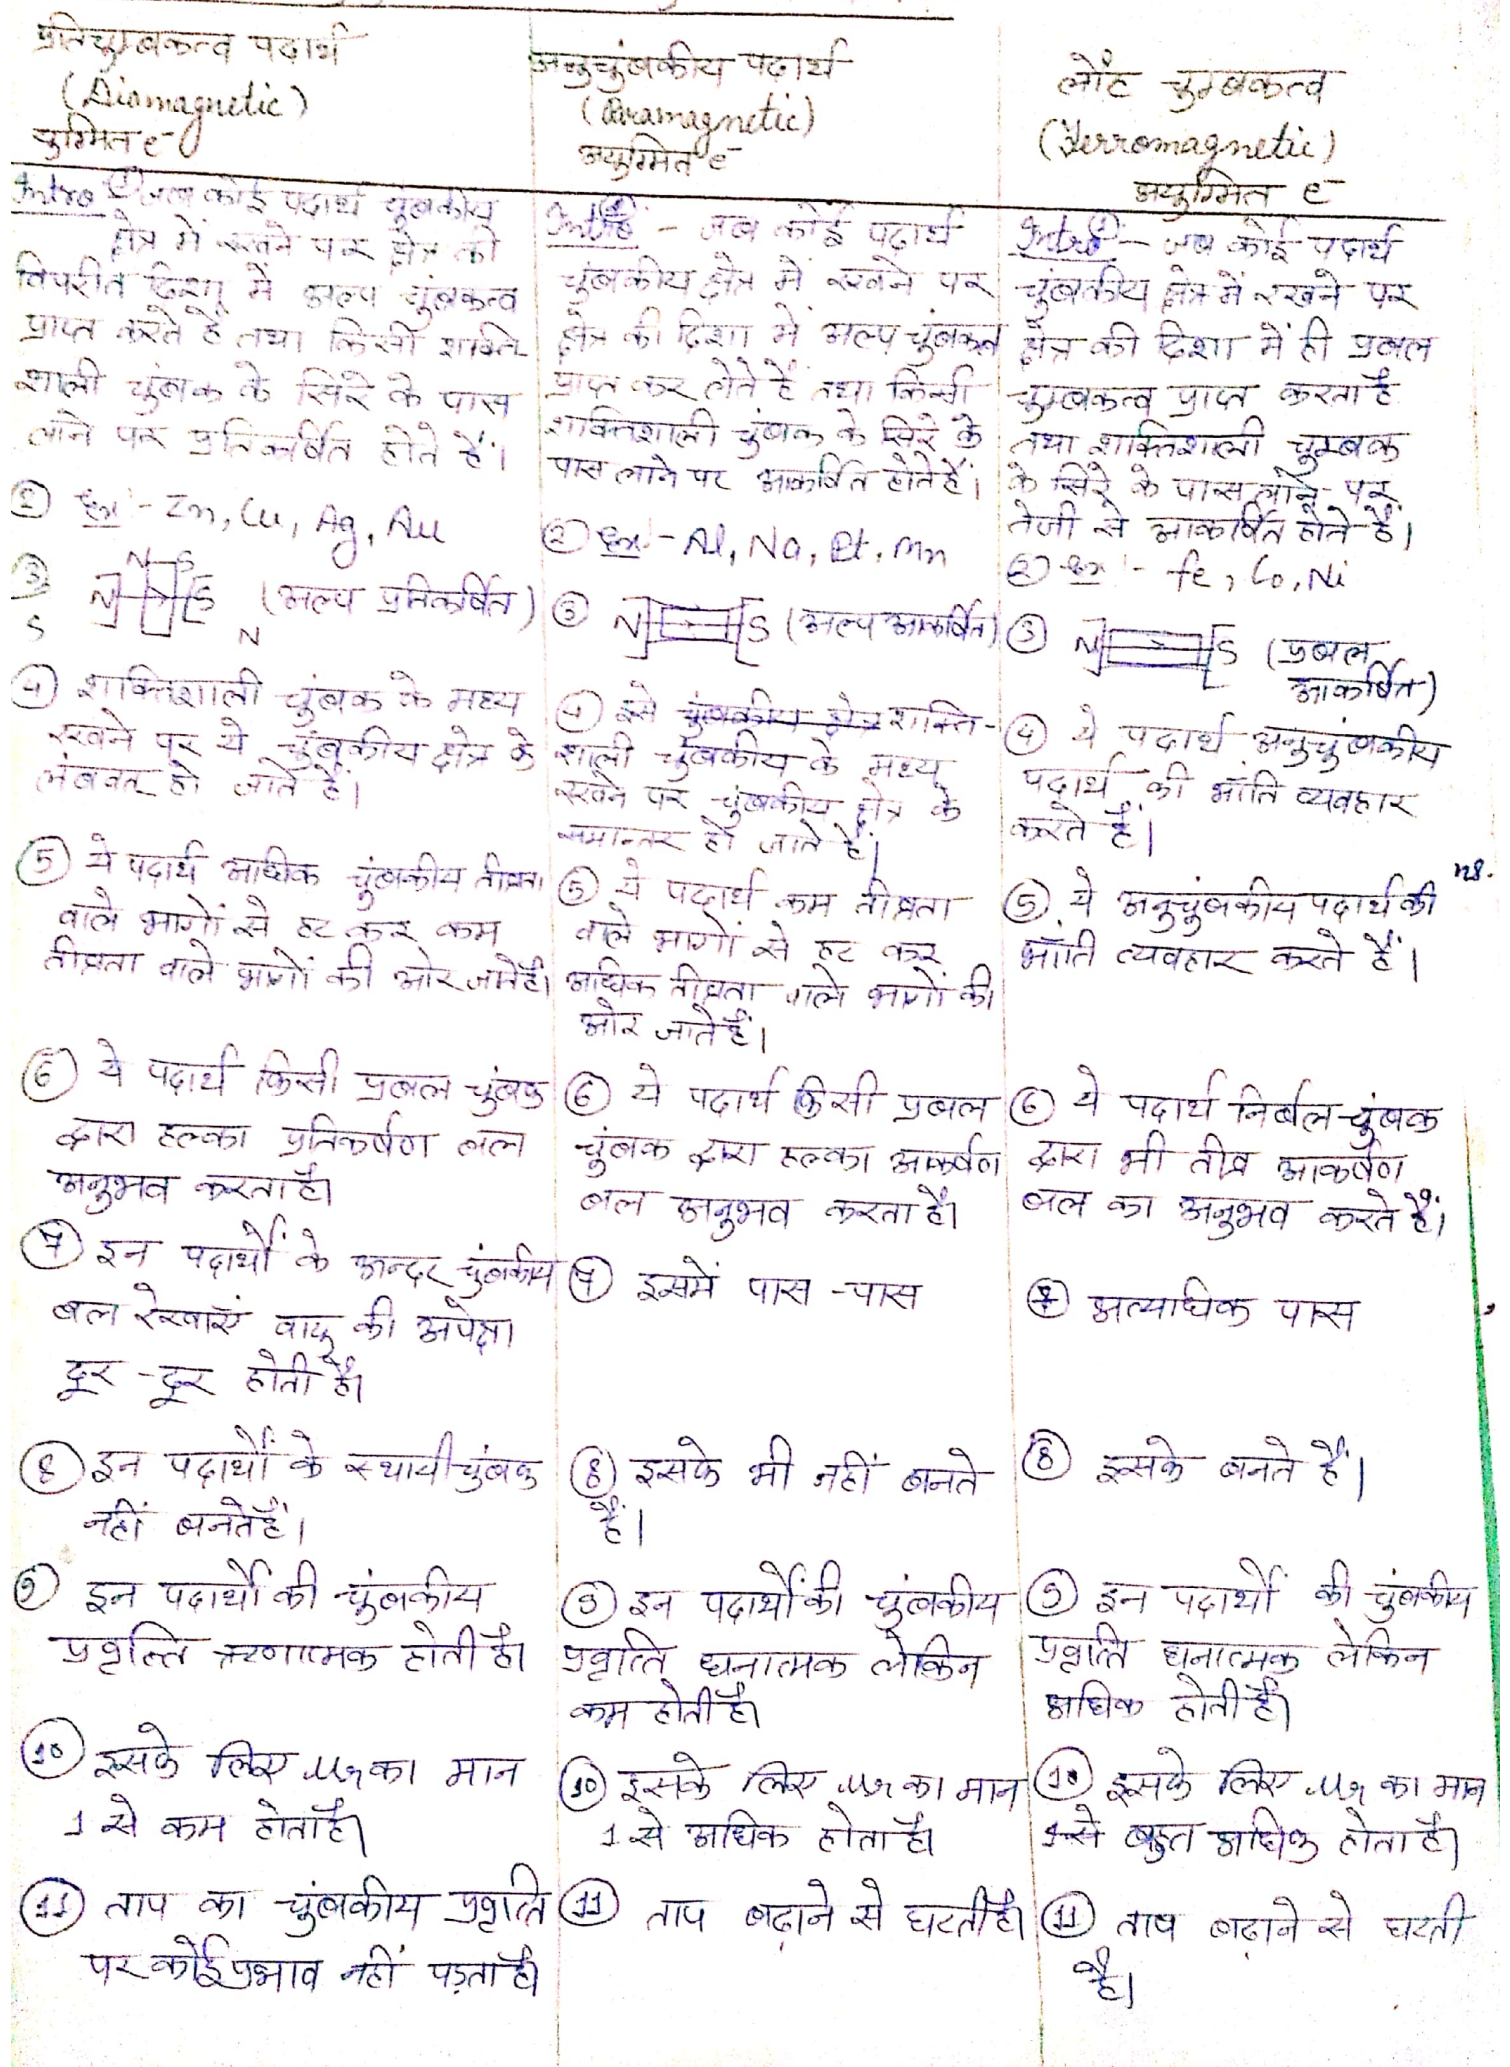 प्रतिचुम्बकत्व पदार्थ
(Diamagnetic)
युग्मित e⁻
Intro ① जब कोई पदार्थ चुंबकीय
क्षेत्र में रखने पर क्षेत्र की
विपरीत दिशा में अल्प चुंबकत्व
प्राप्त करते हैं तथा किसी शक्ति
शाली चुंबक के सिरे के पास
लाने पर प्रतिकर्षित होते हैं।
② Ex:- Zn, Cu, Ag, Au
③ N S
N S (अल्प प्रतिकर्षित)
S N
④ शक्तिशाली चुंबक के मध्य
रखने पर ये चुंबकीय क्षेत्र के
लंबवत् हो जाते हैं।
⑤ ये पदार्थ अधिक चुंबकीय तीव्रता
वाले भागों से हट कर कम
तीव्रता वाले भागों की ओर जाते हैं।
⑥ ये पदार्थ किसी प्रबल चुंबक
द्वारा हल्का प्रतिकर्षण बल
अनुभव करता है।
⑦ इन पदार्थों के अन्दर चुंबकीय
बल रेखाएं वायु की अपेक्षा
दूर-दूर होती है।
⑧ इन पदार्थों के स्थायी चुंबक
नहीं बनते हैं।
⑨ इन पदार्थों की चुंबकीय
प्रवृत्ति ऋणात्मक होती है।
⑩ इसके लिए μr का मान
1 से कम होता है।
⑪ ताप का चुंबकीय प्रवृत्ति
पर कोई प्रभाव नहीं पड़ता है।
अनुचुंबकीय पदार्थ
(Paramagnetic)
अयुग्मित e⁻
Intro ① - जब कोई पदार्थ
चुंबकीय क्षेत्र में रखने पर
क्षेत्र की दिशा में अल्प चुंबकत्व
प्राप्त कर लेते हैं तथा किसी
शक्तिशाली चुंबक के सिरे के
पास लाने पर आकर्षित होते हैं।
② Ex:- Al, Na, Pt, Mn
③ N S (अल्प आकर्षित)
④ इसे चुंबकीय क्षेत्र शक्ति-
शाली चुंबकीय के मध्य
रखने पर चुंबकीय क्षेत्र के
समान्तर हो जाते हैं।
⑤ ये पदार्थ कम तीव्रता
वाले भागों से हट कर
अधिक तीव्रता वाले भागों की
ओर जाते हैं।
⑥ ये पदार्थ किसी प्रबल
चुंबक द्वारा हल्का आकर्षण
बल अनुभव करता है।
⑦ इसमें पास-पास
⑧ इसके भी नहीं बनते
हैं।
⑨ इन पदार्थों की चुंबकीय
प्रवृत्ति धनात्मक लेकिन
कम होती है।
⑩ इसके लिए μr का मान
1 से अधिक होता है।
⑪ ताप बढ़ाने से घटती है।
लौह चुम्बकत्व
(Ferromagnetic)
अयुग्मित e⁻
Intro ① - जब कोई पदार्थ
चुंबकीय क्षेत्र में रखने पर
क्षेत्र की दिशा में ही प्रबल
चुम्बकत्व प्राप्त करता है
तथा शक्तिशाली चुम्बक
के सिरे के पास लाने पर
तेजी से आकर्षित होते हैं।
② Ex:- Fe, Co, Ni
③ N S (प्रबल
आकर्षित)
④ ये पदार्थ अनुचुंबकीय
पदार्थ की भाँति व्यवहार
करते हैं।
⑤ ये अनुचुंबकीय पदार्थ की
भाँति व्यवहार करते हैं।
⑥ ये पदार्थ निर्बल चुंबक
द्वारा भी तीव्र आकर्षण
बल का अनुभव करते हैं।
⑦ अत्याधिक पास
⑧ इसके बनते हैं।
⑨ इन पदार्थों की चुंबकीय
प्रवृत्ति धनात्मक लेकिन
अधिक होती है।
⑩ इसके लिए μr का मान
1 से बहुत अधिक होता है।
⑪ ताप बढ़ाने से घटती
है।